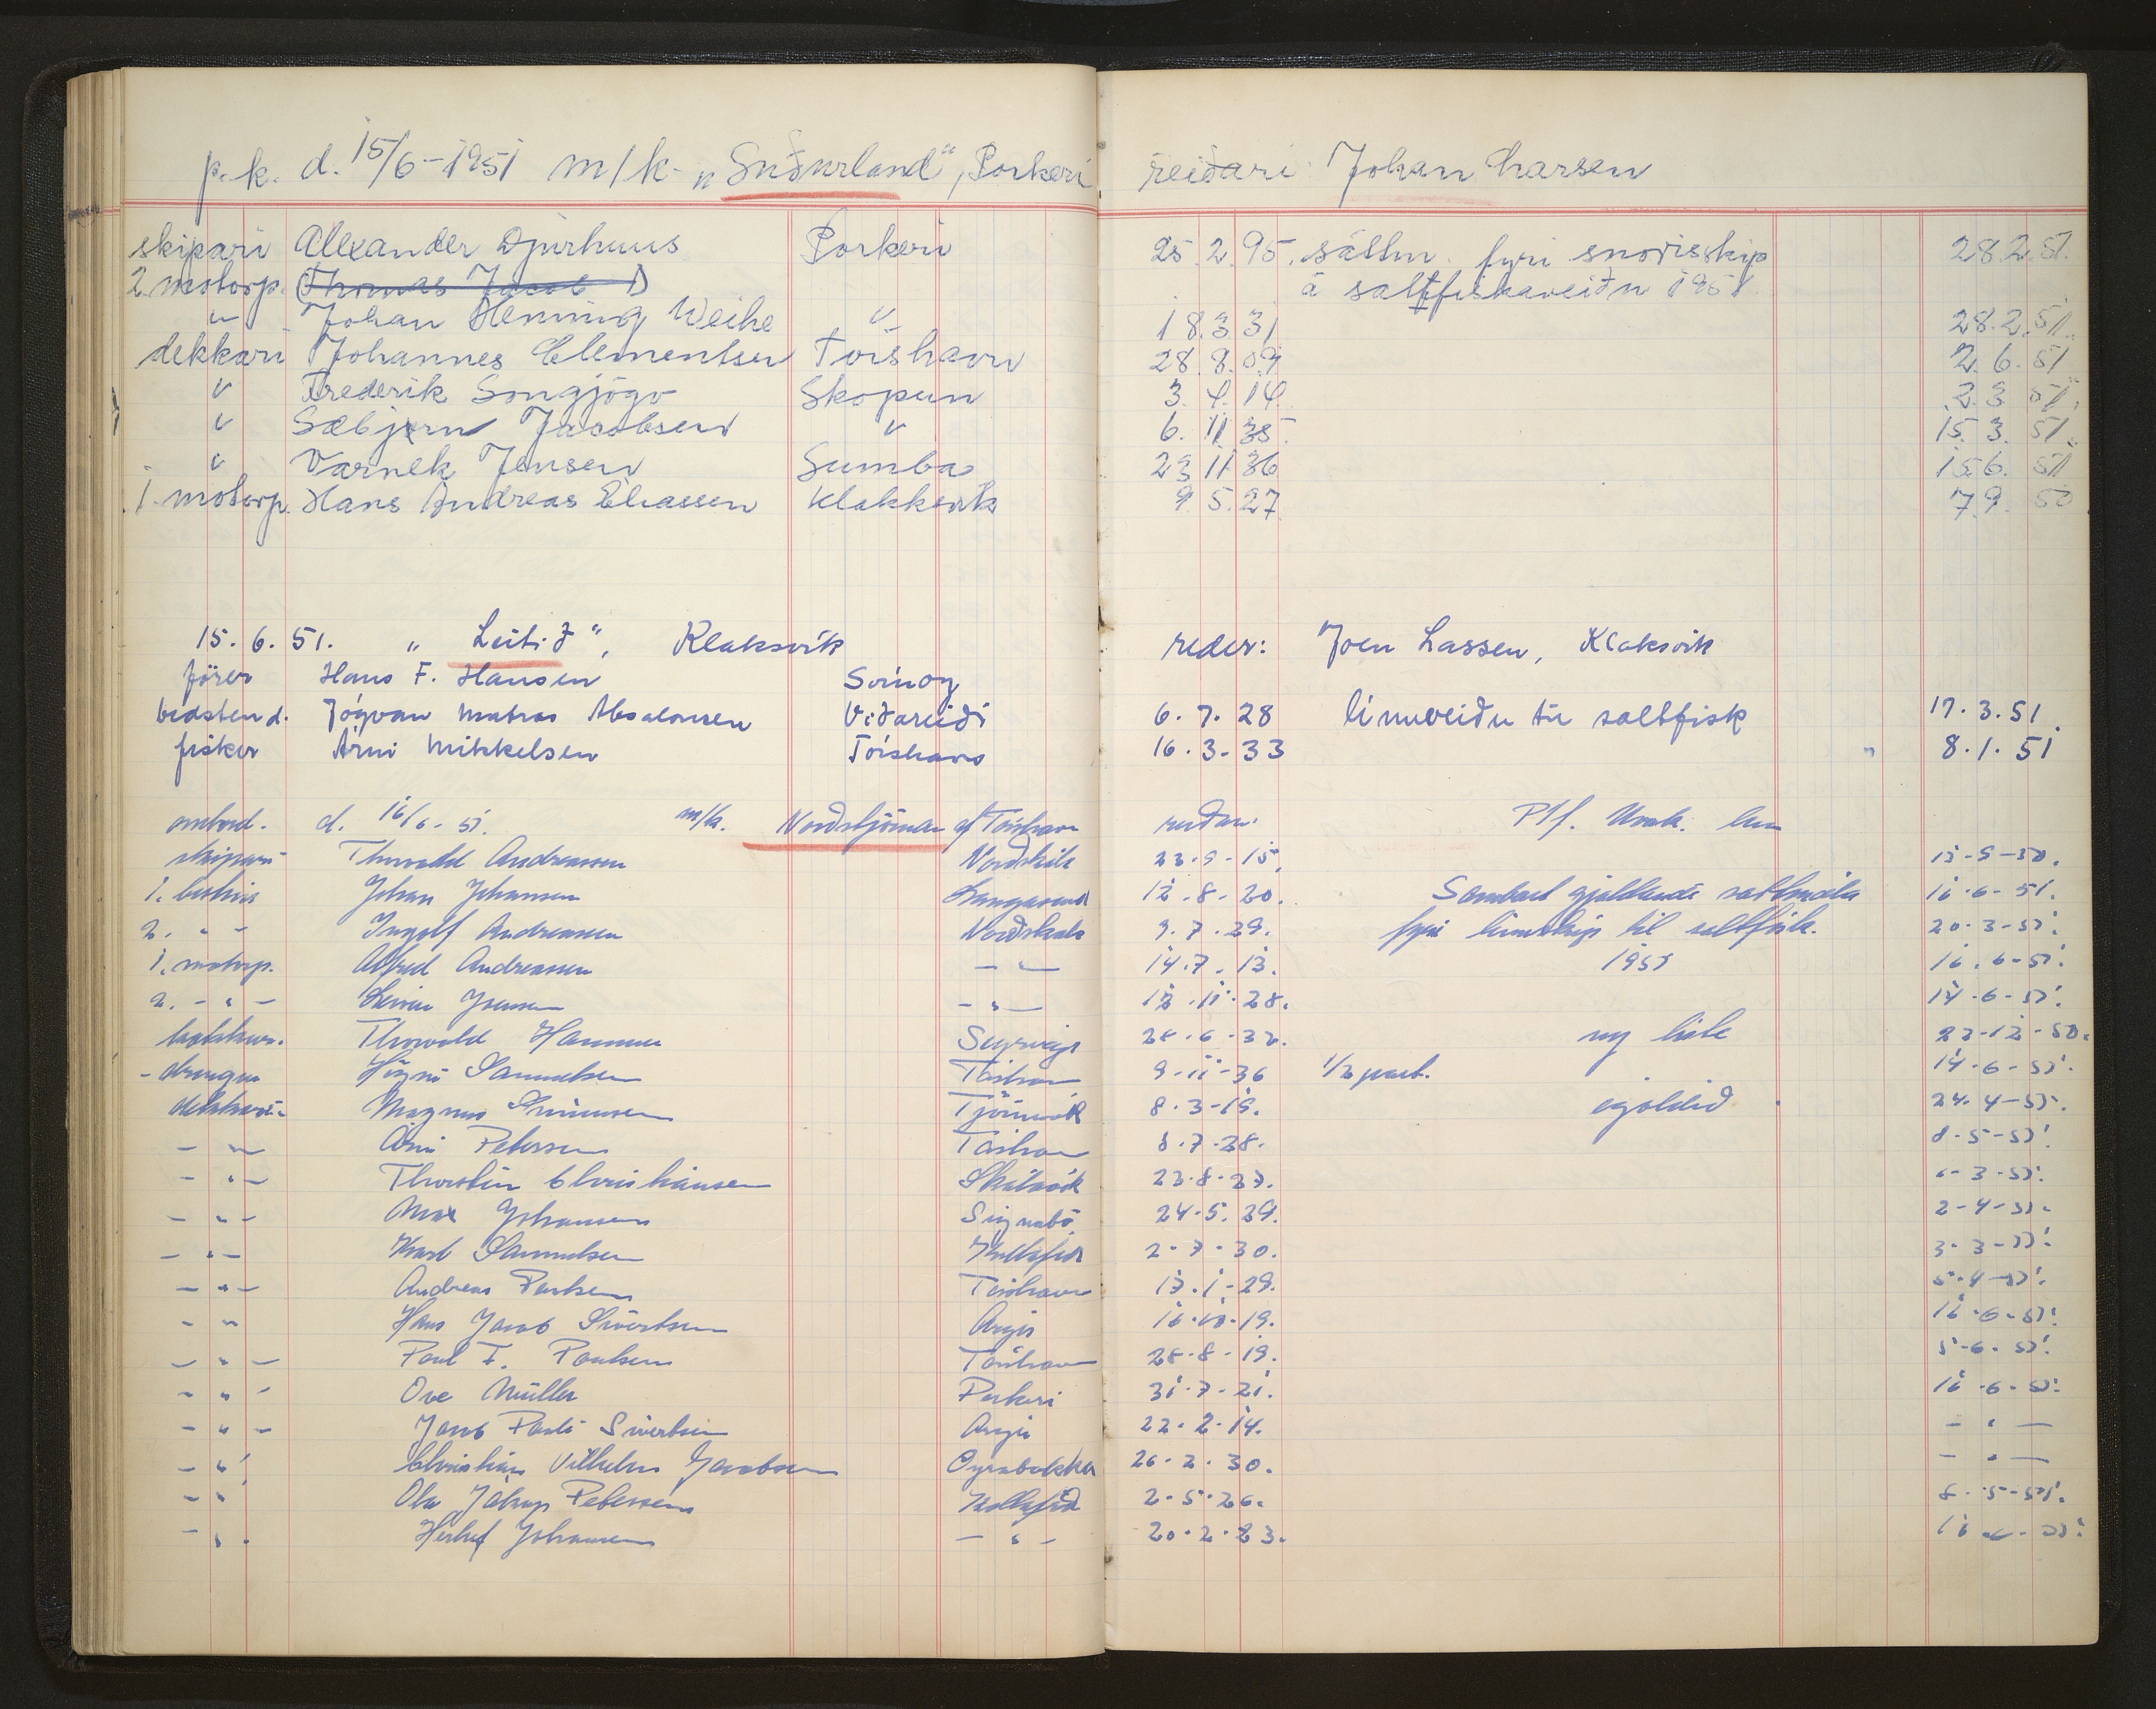 p.k. d. 15/6-1951 m/k „Suðurland“, Porkeri reiðari: Johan Larsen
skipari Alexander Djurhuus Porkeri 25.2.95. sáttm. fyri snørisskip 28.2.51.
2 motorp. Thomas Jacob D á saltfiskaveiðu 1951
" Johan Henning Weihe " 18.3.31 28.2.51.
dekkari Johannes Clementsen Tórshavn 28.8.09 2.6.51
" Frederik Songjógv Skopun 3.4.14. 2.3 51.
" Sæbjørn Jacobsen " 6.11.35. 15.3.51.
" Varnek Jensen Sumba 23 11 36 15.6.51
1. motorp. Hans Andreas Eliassen Klakksvík 9.5.27 7.9.50
15.6.51. „Leitið“, Klaksvík reder: Joen Lassen, Klaksvik
förer Hans F. Hansen Svínoy
bedstem d. Jógvan Matras Absalonsen Viðareiði 6.7.28 línuveiðu til saltfisk 17.3.51.
fisker Árni Mikkelsen Tórshavn 16.3.33 " 8.1.51
ombord. d. 16/6-51. m/k. Norðstjörnan af Tórshavn reiðari:
skipari Thorvald Andreassen Norðskála 23.9-15. 15-5-50.
1. bestm. Johan Johansen Langasand 12.8-20. Sambært gjaldandi sáttmála 16-6-51.
2. - " - Ingolf Andreassen Norðskála 9.7.29. fyri línuskip til saltfisk. 20-3-51.
1. motorp. Alfred Andreassen - " - 14.7.13. 1951 16.6-51.
2. - " - Joensen - " - 12.11.28. 14-6-51.
Thorvald Hammer 28.6.32. ny liste 22-12-50.
- drongur Høgni Samuelsen Tórshavn 9-11-36 1/2 part. 14-6-51.
dekkari Magnus Simonsen Tjörnuvík 8.3-15. ógoldið 24.4-51.
- " - Árni Petersen Tórshavn 8.7.28. 8-5-51.
- " - Thorstein Christiansen Skálavík 23.8-27.
- " - Max Johansen Signabø 24.5.29. 2-4-51.
- " - Karl Samuelsen Kollafirð 2.7.30. 3-3-51.
- " - Andreas Poulsen Tórshavn 13.1-29. 5-4-51.
- " Hans Jacob Sivertsen Argir 16.10.19. 16-6-51.
- " - Poul F. Poulsen Tórshavn 28.8-19. 5-6-51.
- " - Ove Müller Porkeri 31.7-21. 16-6-51.
- " - Jacob Pauli Sivertsen Argir 22.2.14. - " -
- " Christian Vilhelm Jacobsen Oyrabakka 26.2.30. - " -
- " Ola Jákup Petersen Kollafirð 2.5.26. 8-5-51.
- " . Herluf Johansen - " - 20.2.23.